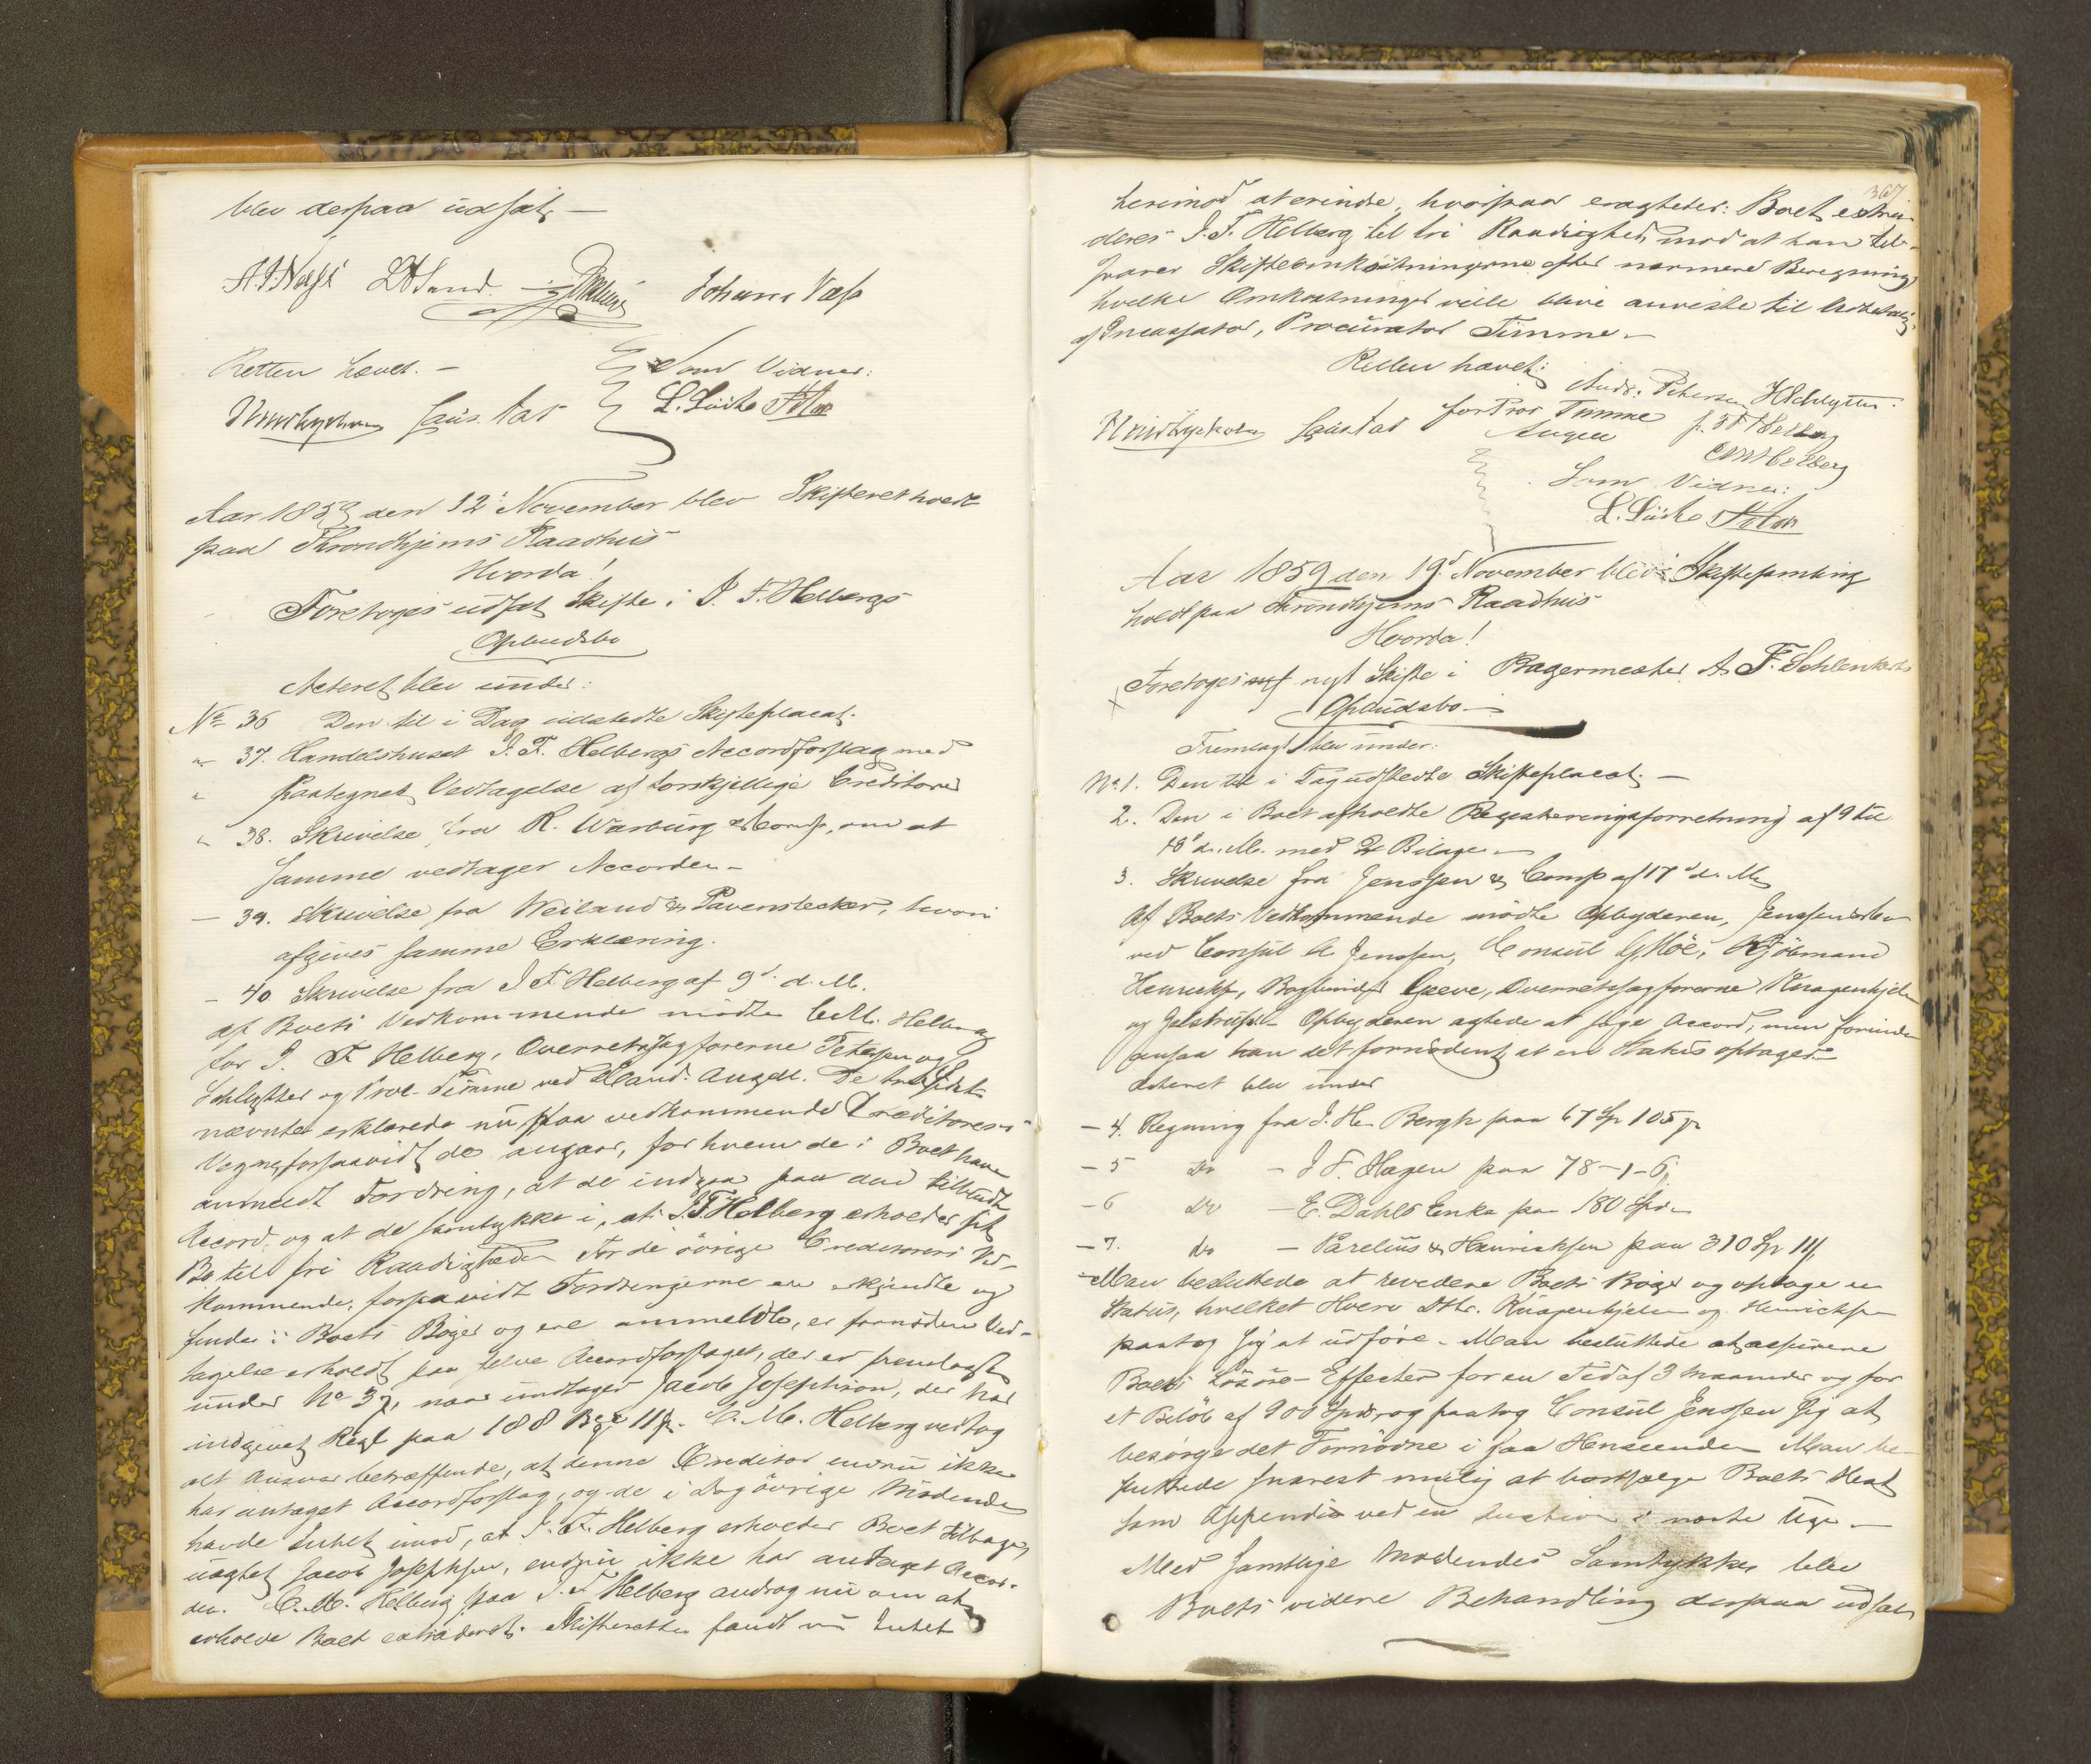 blev derpaa udsat. —
A. J. Næss L. Sand Johann Næss
Retten hævet. — Som Vidner:
L. Lücke
Aar 1859 den 12t November blev Skifteret holdt
paa Throndhjems Raadhuus
Hvorda!
Foretoges udsat Skifte i J. F. Helbergs
Opbudsbo
Acteret blev under:
No 36 Den til i Dag udstedte Skifteplacat.
" 37. Handelshuset J. F. Helbergs Accordforslag med
" Paategnet Vedtagelse af forskjellige Creditorer
" 38. Skrivelse fra R. Warburg & Comp, om at
samme vedtager Accorden —
— 39. Skrivelse fra Weiland & Pavenstecker, hvori
afgives samme Erklæring.
— 40 Skrivelse fra J. F. Helberg af 9d. d. M.
Af Boets Vedkommende mødte C. M. Helberg
for J. F. Helberg, Overretssagførerne Petersen og
Schlytter og Proc. Timme ved Cand. Angell. De tre sidst
nævnte erklærede nu paa vedkommende Creditorers
Vegne, forsaavidt de angaar, for hvem de i Boet have
anmeldt Fordring, at de indgaa paa den tilbudte
Accord, og at de samtykke i, at J. F. Helberg erholder sit
Bo til fri Raadighed. For de övrige Creditorers Ved-
kommende, forsaavidt Fordringerne ere erkjendte og
findes i Boets Bøger og ere anmeldte, er fornøden Ved-
tagelse erholdt paa selve Accordforslaget, der er fremlagt
under No 37, naar undtages Jacob Josephson, der har
indgivet Regl paa 188 Bco 11 ß. C. M. Helberg vedtog
alt Ansvar betræffende, at denne Creditor endnu ikke
har antaget Accordforslag, og de i Dag övrige Mödende
havde Intet imod, at J. F. Helberg erholder Boet tilbage,
uagtet Jacob Josephson, endnu ikke har antaget Accor-
den. C. M. Helberg paa J. F. Helberg androg nu om at
erholde Boet extraderet. Skifteretten fandt nu Intet
367
herimod at erindre, hvorpaa eragtedes: Boet extra-
deres J. F. Helberg til fri Raadighed, mod at han til-
svarer Skifteomkostningerne efter nærmere Beregning,
hvilke Omkostninger ville blive anviste til Udbetaling
af Incassator, Procurator Timme. —
Retten hævet:
Andr. Petersen H Schlytter.
for Proc Timme p. J F Helberg
Angell CM Helberg
Som Vidner:
L. Lücke
Aar 1859 den 19d November blev Skiftesamling
holdt paa Throndhjems Raadhuus
Hvorda!
Foretoges nyt Skifte i Bagermester A. F. Schlenkers
Opbudsbo —
Fremlagt blev under:
No 1. Den til i Dag udstedte Skifteplacat. —
2. Den i Boet afholdte Registreringsforretning af 9 til
18d d. M. med 2 Bilage —
3. Skrivelse fra Jenssen & Comp af 17d d. M.
Af Boets Vedkommende mødte Opbyderen, Jenssen & Co
ved Consul A Jenssen, Consul G. Moe, Kjøbmand
Henrichs, Bogbinder Greve, Overretssagførerne Knagenhjelm
og Gjelstrup. Opbyderen agtede at søge Accord, men forinden
ansaa han det fornødent, at en Status optages. —
Acteret blev under
— 4. Regning fra J. H. Bergh paa 67 Sp 105 ß
— 5 do — J F. Hagen paa 78-1-6.
— 6 do — E. Dahls Enke paa 180 Spd. —
— 7. do — Parelius & Henrichsen paa 310 Sp 11 ß
Man besluttede at revidere Boets Bøger og optage en
Status, hvilket Hverv DHr. Knagenhjelm og Henrichsen
paatog sig at udføre. — Man besluttede at assurere
Boets Løsøre-Effecter for en Tid af 3 Maaneder og for
et Beløb af 900 Spdr og paatog Consul Jenssen sig at
besørge det Fornødne i saa Henseende. Man be-
sluttede snarest mulig at bortsælge Boets Hest
som Appendix ved en Auction i næste Uge. —
Med samtlige Mødendes Samtykke, blev
Boets videre Behandling derpaa udsat.